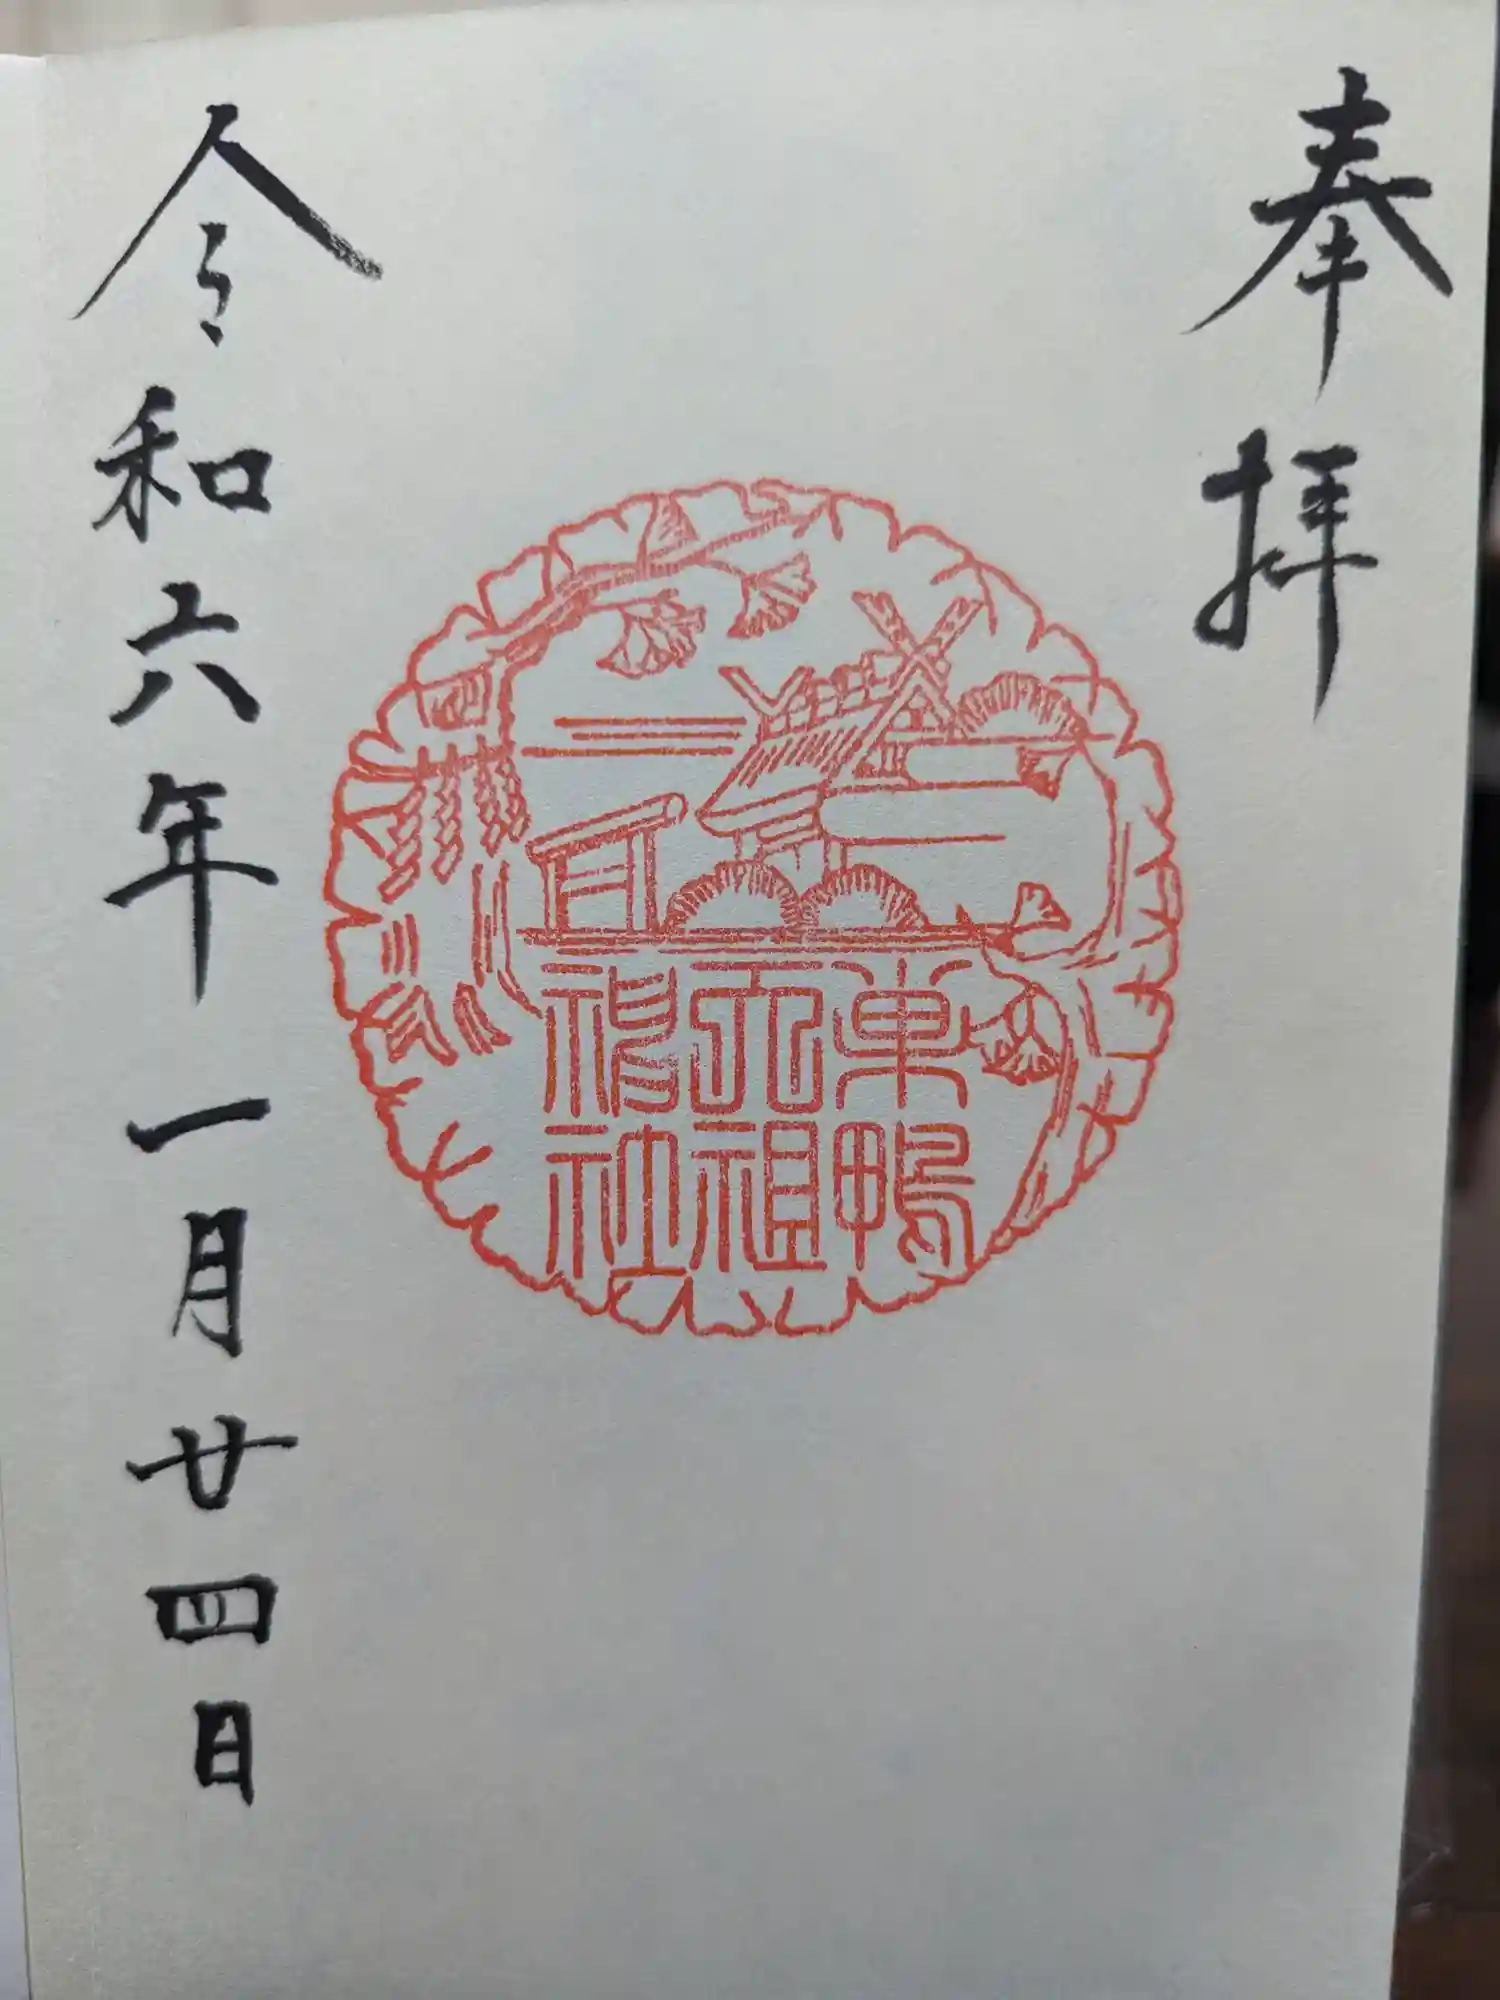 奉拝
東鴨
天祖
神社
令和六年一月廿四日